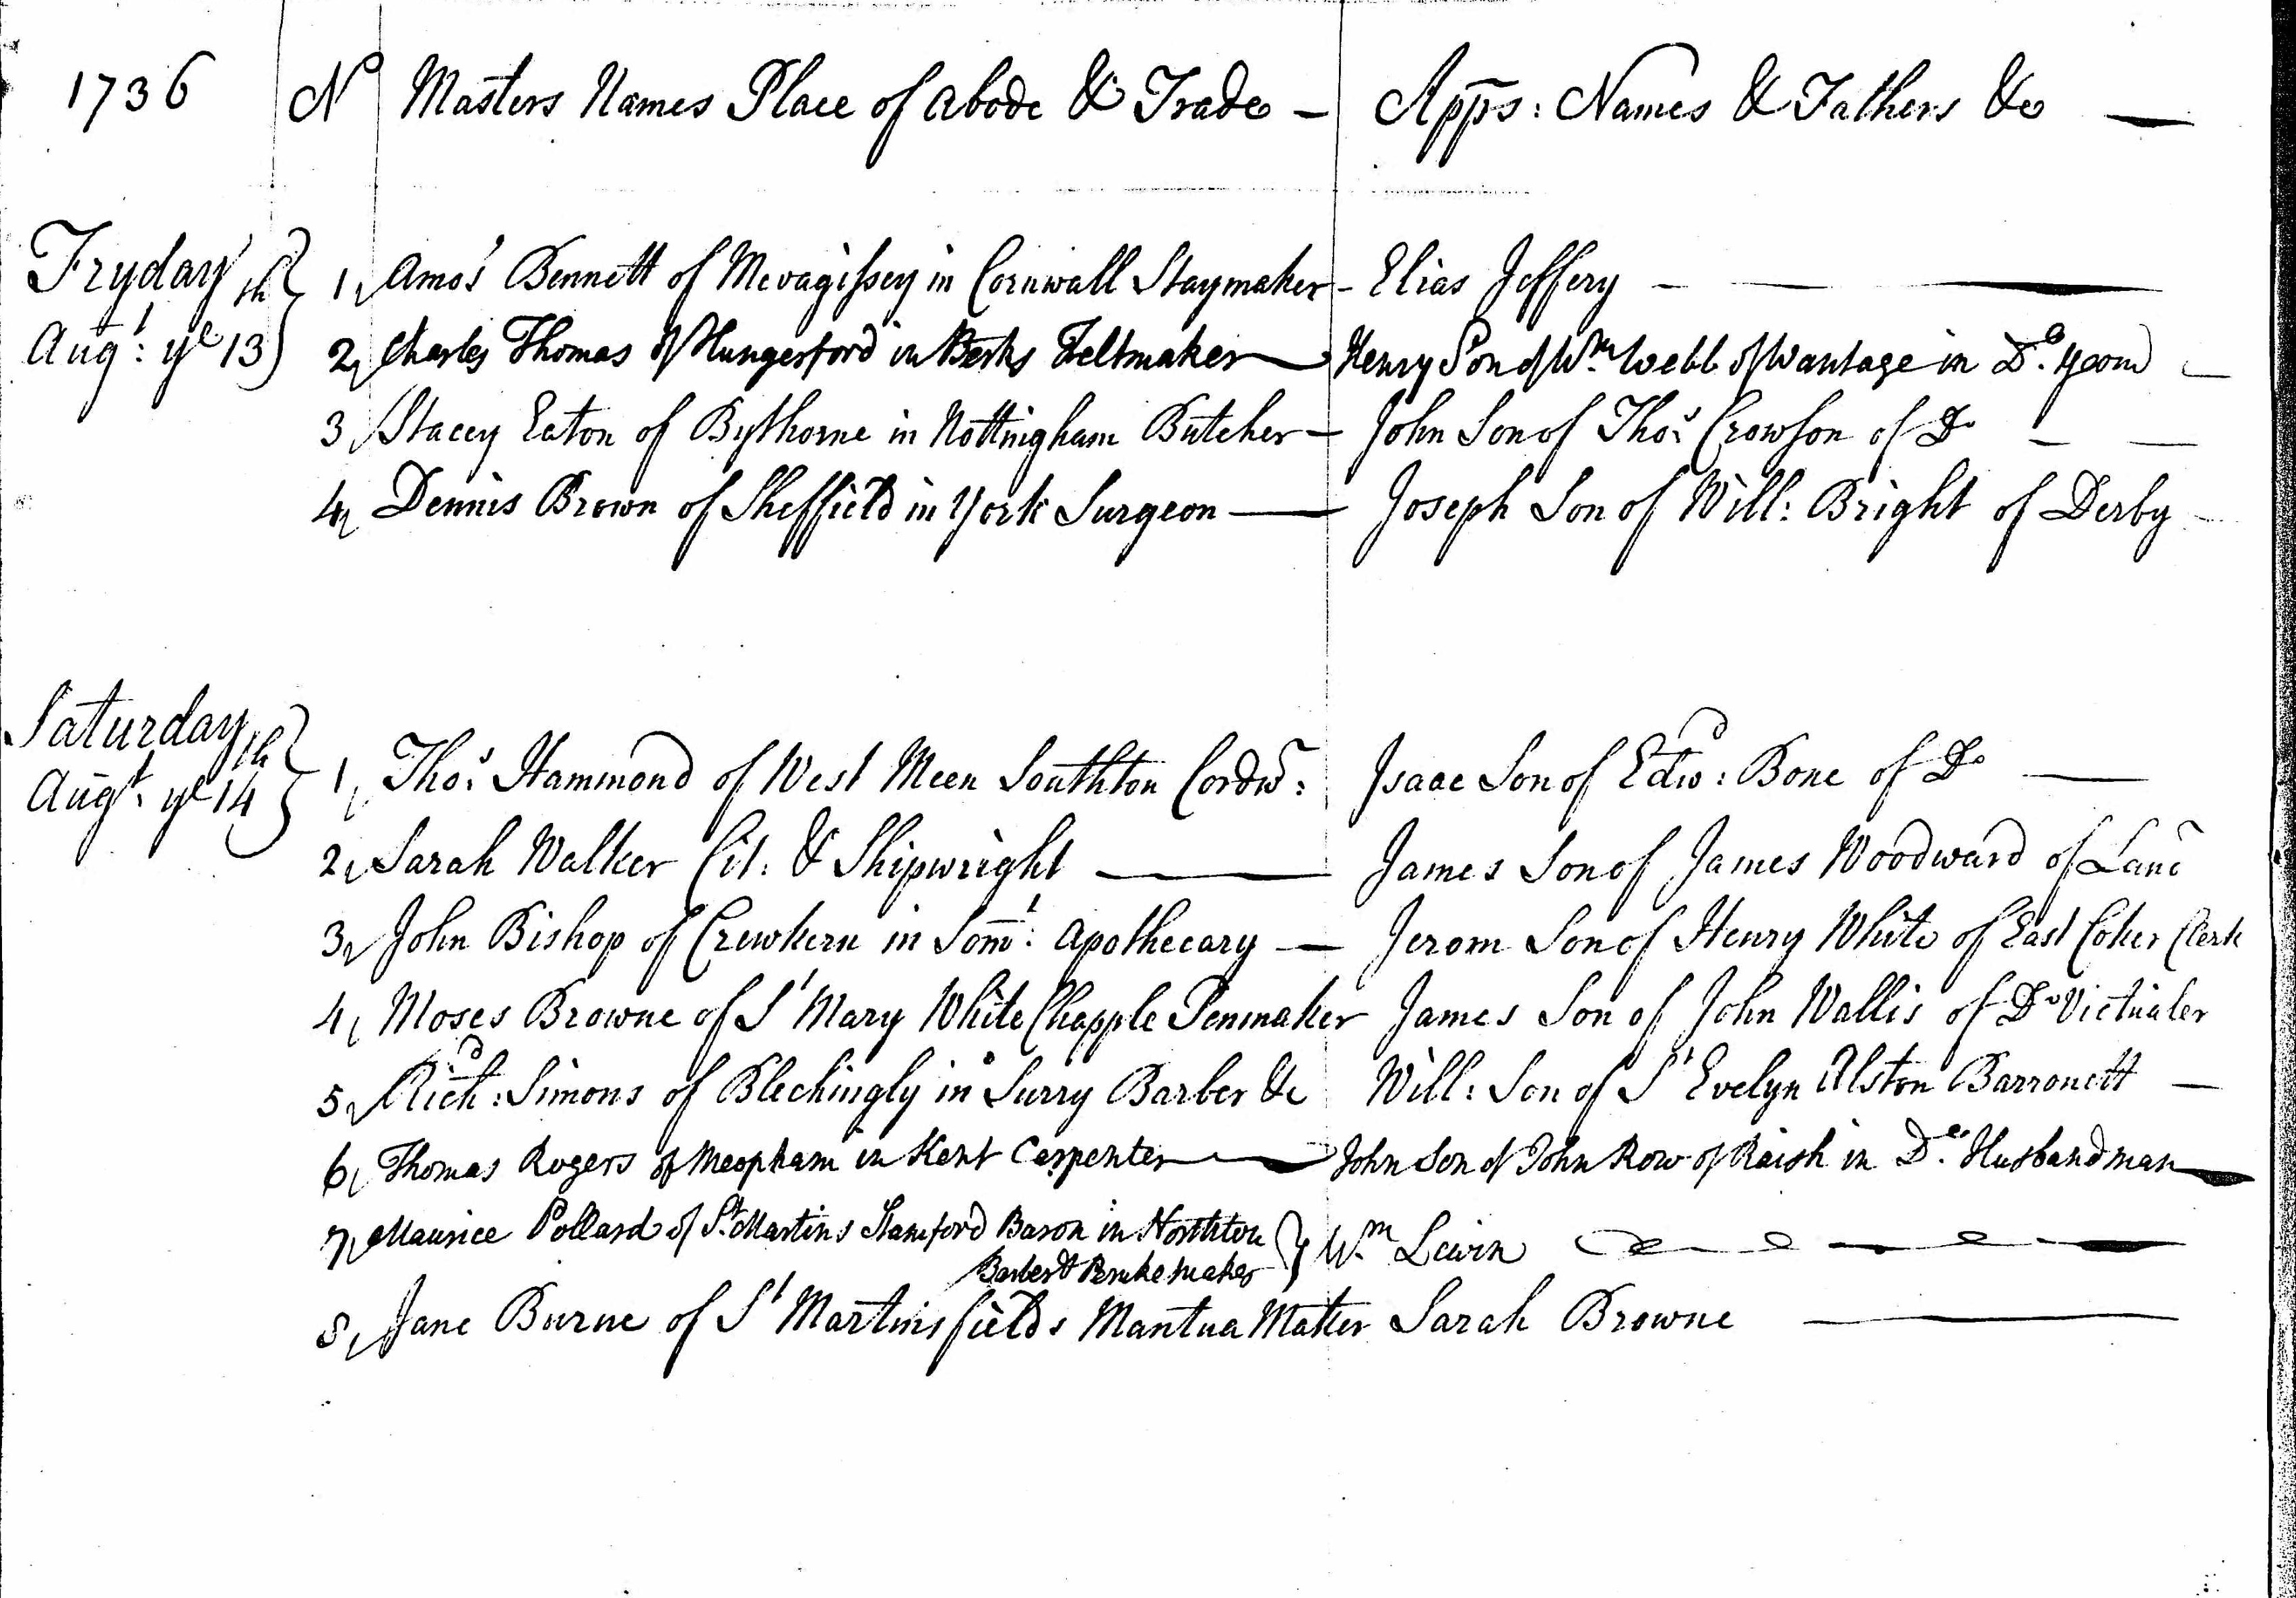 1736 No Masters Names Place of abode & Trade — Apps: Names & Fathers &c —
Fryday
Augt: ye 13th
1, Amos Bennett of Mevagissey in Cornwall Staymaker - Elias Jeffery —
2, Charles Thomas of Hungerford in Berks Feltmaker — Henry Son of Wm Webb of Wantage in Do. yeom —
3, Stacey Eaton of Bythorne in Nottingham Butcher — John Son of Thos Crowson of Do —
4, Dennis Brown of Sheffield in York Surgeon — Joseph Son of Will: Bright of Derby
Saturday
Augt. ye 14th
1, Thos Hammond of West Meen Southton Cordw: Isaac Son of Edwd: Bone of Do —
2, Sarah Walker Cit: & Shipwright — James Son of James Woodward of Lanc
3, John Bishop of Crewkern in Somt: Apothecary — Jerom Son of Henry White of East Coker Clerk
4, Moses Browne of St Mary White Chapple Penmaker James Son of John Wallis of Do Victualer
5, Richd: Simons of Blechingly in Surry Barber &c Will: Son of Sr Evelyn Alston Barronett —
6, Thomas Rogers of Meopham in Kent Carpenter — John Son of John Row of Raish in Do. Husbandman
7, Maurice Pollard of St. Martins Stamford Baron in Northton } Wm Lewin
Barber & Perukemaker
8, Jane Burne of St Martinsfields Mantua Maker Sarah Browne —